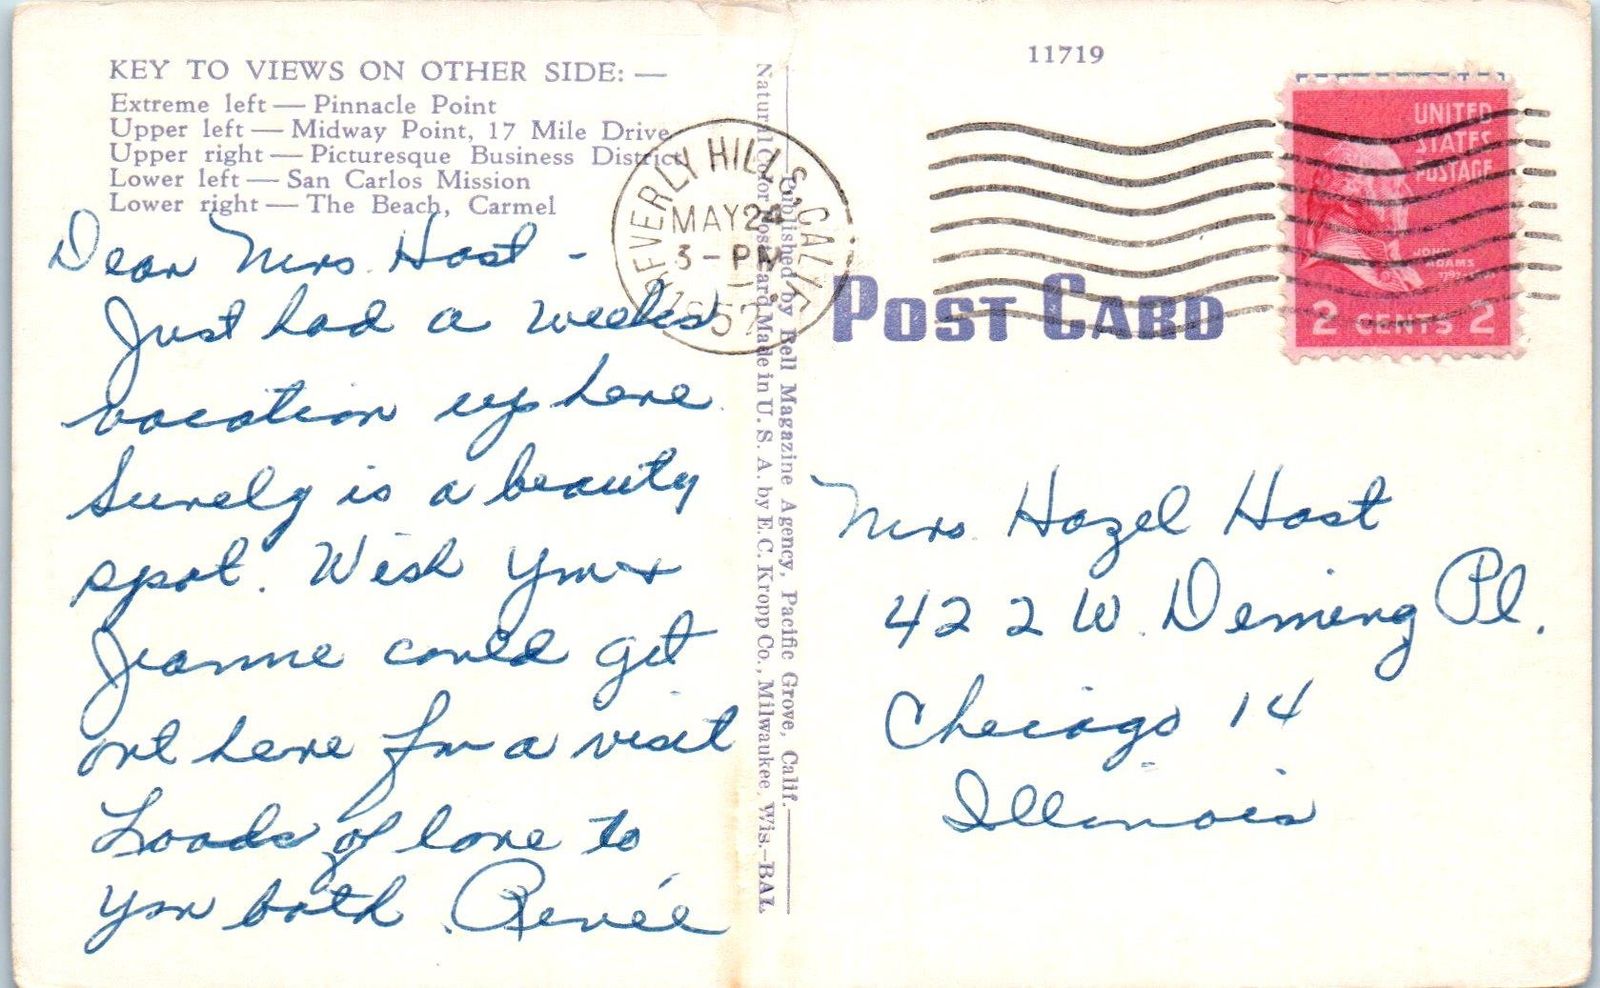 KEY TO VIEWS ON OTHER SIDE: —
Extreme left — Pinnacle Point
Upper left — Midway Point, 17 Mile Drive
Upper right — Picturesque Business District
Lower left — San Carlos Mission
Lower right — The Beach, Carmel
Dear Mrs. Host -
Just had a weeks
vacation up here.
Surely is a beauty
spot. Wish you &
Jeanne could get
out here for a visit
Loads of love to
you both. Renée
Natural Color Post Card Made in U. S. A. by E. C. Kropp Co., Milwaukee, Wis.—BAL
Published by Bell Magazine Agency, Pacific Grove, Calif.
11719
BEVERLY HILLS, CALIF.
MAY 24
3 - PM
1957
POST CARD
UNITED
STATES
POSTAGE
JOHN
ADAMS
2 CENTS 2
Mrs. Hazel Host
422 W. Deming Pl.
Chicago 14
Illinois